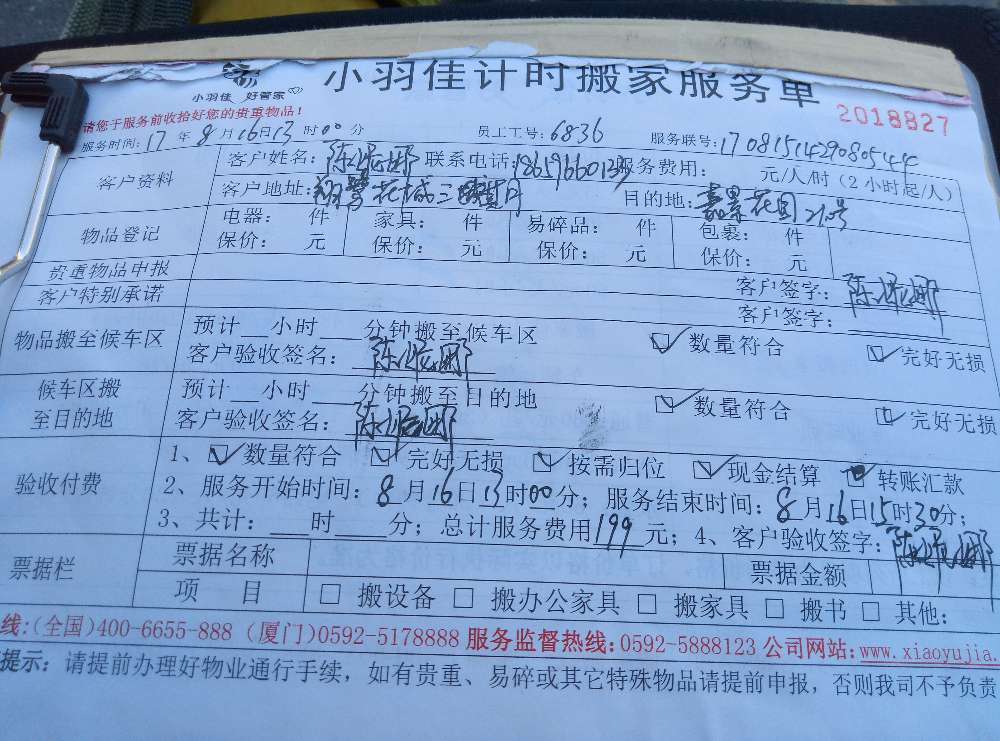 小羽佳计时搬家服务单
小羽佳 好管家
2018827
请您于服务前收拾好您的贵重物品!
服务时间: 17 年 8 月 16 日 13 时 00 分 员工工号: 6836 服务联号: 1708151429080544
客户资料 客户姓名: 陈 娜 联系电话: 服务费用: 元/人/时 (2 小时起/人)
客户地址: 翔鹭花城三期 目的地: 嘉景花园 210号
物品登记 电器: 件 家具: 件 易碎品: 件 包裹: 件
保价: 元 保价: 元 保价: 元 保价: 元
贵重物品申报 客户签字: 陈 娜
客户特别承诺 客户签字:
物品搬至候车区 预计__小时___分钟搬至候车区 数量符合 完好无损
客户验收签名: 陈 娜
候车区搬至目的地 预计__小时___分钟搬至目的地 数量符合 完好无损
客户验收签名: 陈 娜
验收付费 1、数量符合 完好无损 按需归位 现金结算 转账汇款
2、服务开始时间: 8 月 16 日 13 时 00 分; 服务结束时间: 8 月 16 日 15 时 30 分;
3、共计: ___时____分; 总计服务费用 199 元; 4、客户验收签字: 陈 娜
票据栏 票据名称 票据金额
项 目 □ 搬设备 □ 搬办公家具 □ 搬家具 □ 搬书 □ 其他:
线:(全国)400-6655-888 (厦门)0592-5178888 服务监督热线:0592-5888123 公司网站:www.xiaoyujia.
提示: 请提前办理好物业通行手续, 如有贵重、易碎或其它特殊物品请提前申报, 否则我司不予负责